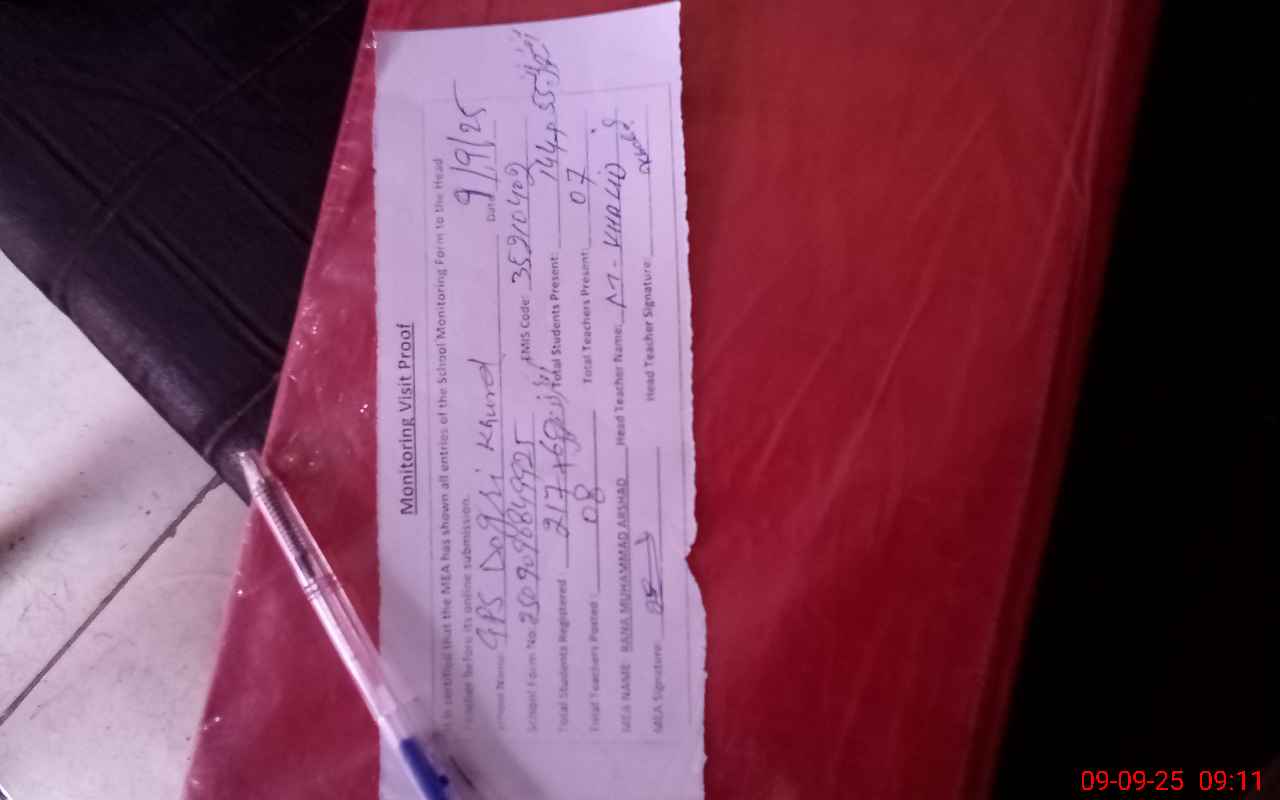 Monitoring Visit Proof
It is certified that the MEA has shown all entries of the School Monitoring Form to the Head
Teacher before its online submission.
School Name: GPS Dogri Khurd Date 9/9/25
School Form No: EMIS Code: 35210402
Total Students Registered 217 + Total Students Present: 144+ 55
Total Teachers Posted: 08 Total Teachers Present: 07
MEA NAME RANA MUHAMMAD ARSHAD Head Teacher Name: M-KHALID
MEA Signature: Head Teacher Signature:
09-09-25 09:11